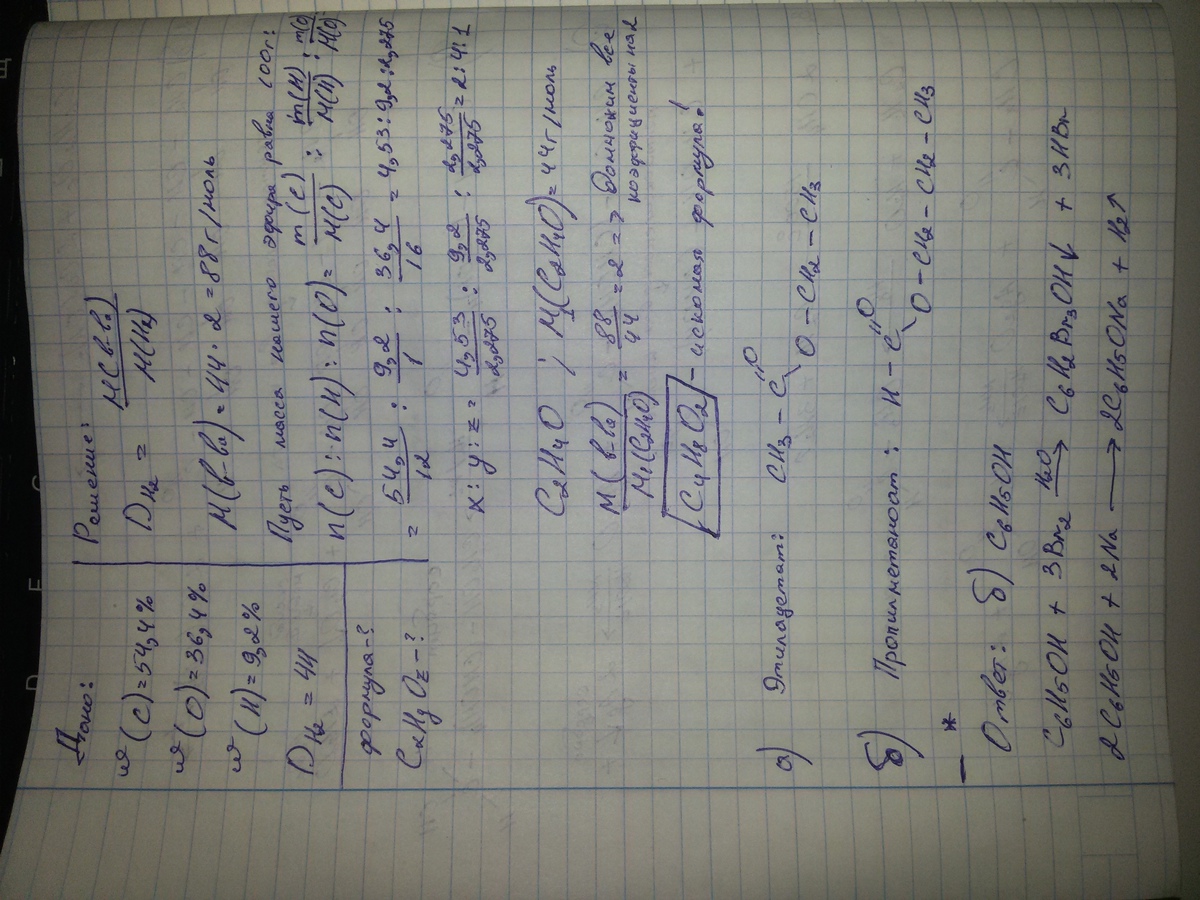 Дано:
ω(C)=54,4%
ω(O)=36,4%
ω(H)=9,2%
D H2 = 44
формула-?
CxHyOz-?
Решение:
D H2 = M(в-ва)/M(H2)
M(в-ва)=44·2=88г/моль
Пусть масса нашего эфира равна 100г:
n(C):n(H):n(O)= m(C)/M(C) : m(H)/M(H) : m(O)/M(O) =
= 54,4/12 : 9,2/1 : 36,4/16 = 4,53:9,2:2,275
x:y:z= 4,53/2,275 : 9,2/2,275 : 2,275/2,275 =2:4:1
C2H4O ; M(C2H4O)=44г/моль
M(в-ва)/Mг(C2H4O) = 88/44 =2 => Домножим все
коэффициенты на 2
C4H8O2 - искомая формула!
а) Этилацетат: CH3-C=O
O-CH2-CH3
б) Пропилметаноат: H-C=O
O-CH2-CH2-CH3
*
Ответ: б) C6H5OH
C6H5OH + 3Br2 H2O→ C6H2Br3OH↓ + 3HBr
2C6H5OH + 2Na → 2C6H5ONa + H2↑